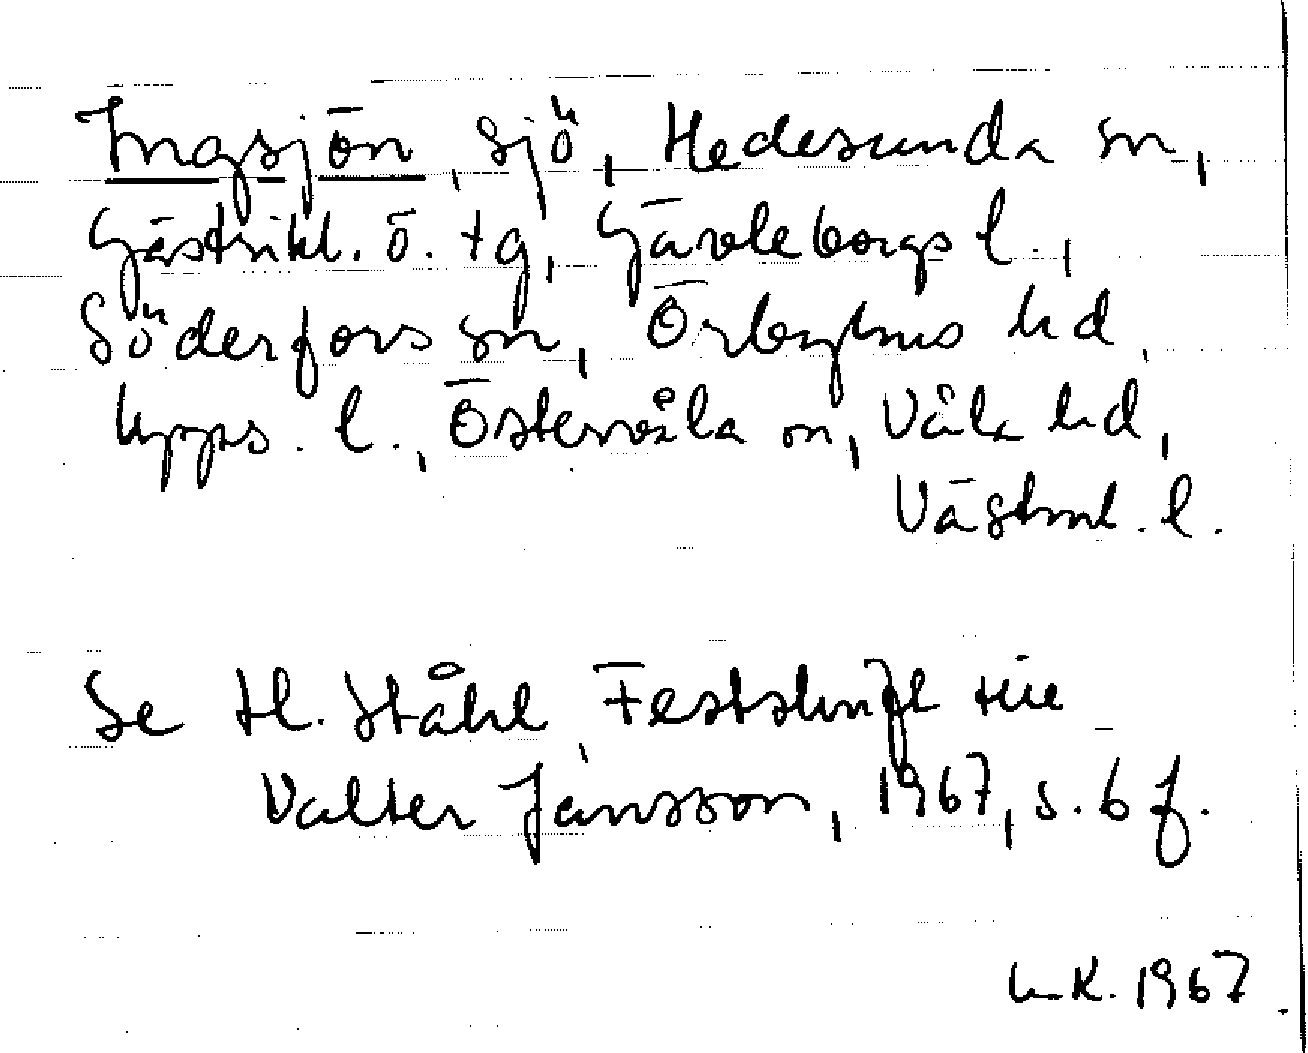 Ingsjön, sjö, Hedesunda sn,
Gästrikl. ö. tg, Gävleborgs l.,
Söderfors sn, Örbyhus hd,
Upps. l., Östervåla sn, Våla hd,
Västml. l.
Se H. Ståhl, Festskrift till
Valter Jansson, 1967, s. 6 f.
K. 1967